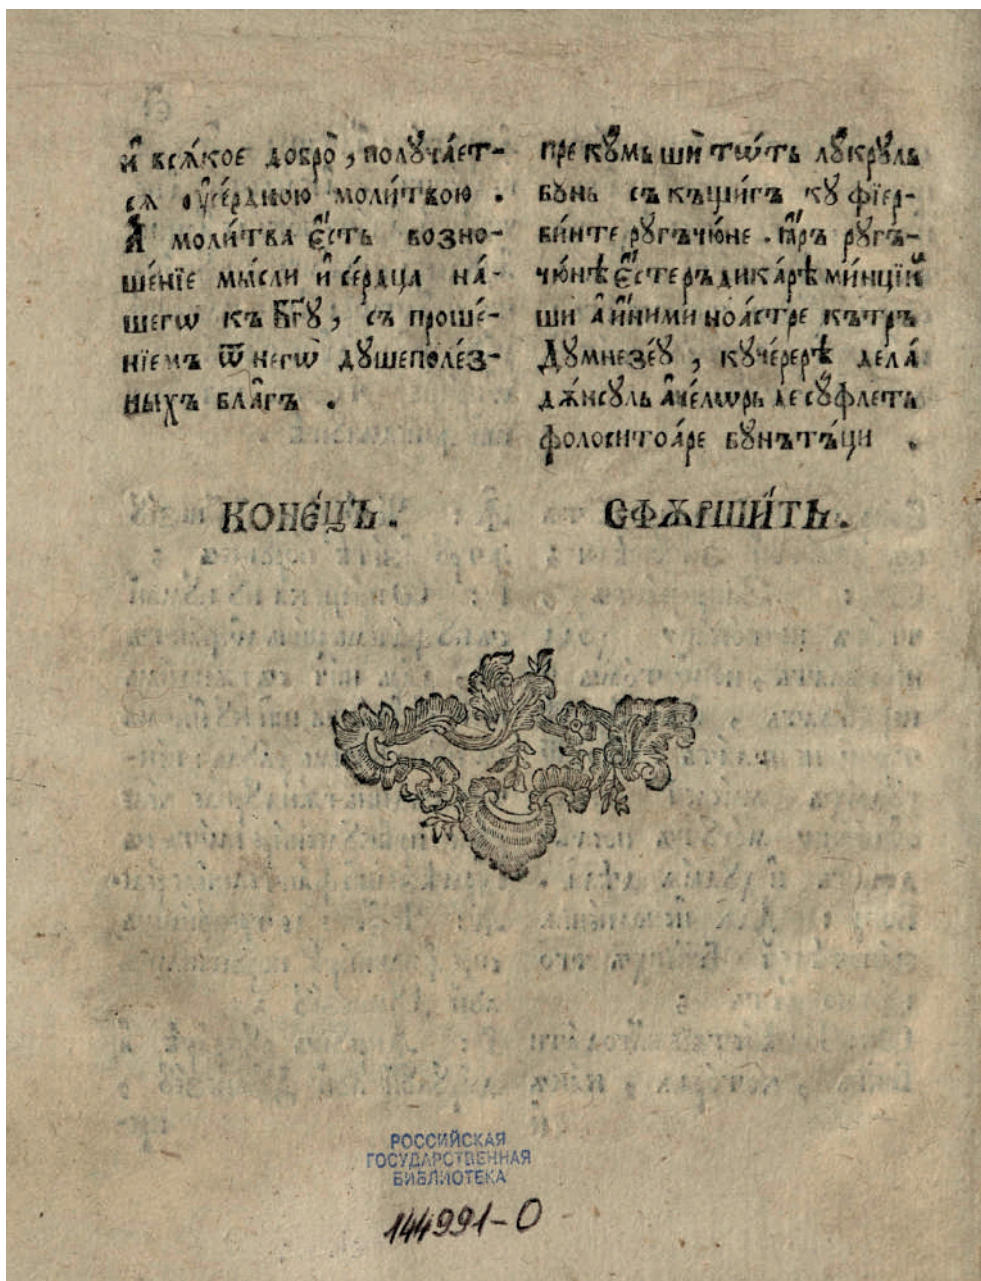 и҆ всѧ́кое добро̀, полꙋча́ет-
сѧ ᲂу҆се́рдною моли́твою .
А҆ моли́тва є҆́сть возно-
ше́нїе мы́сли и҆ се́рдца на́-
шегѡ къ Бг҃ꙋ, съ проше́-
нїемъ ѿ негѡ̀ дꙋшеполе́з-
ныхъ бла̑гъ .
КОНЕ́ЦЪ.
прекꙋ́мь шѝ тѡ́ть лꙋ́крꙋль
бꙋнь съ къщи́гъ кꙋ фїер-
би́нте рꙋгъчю́не . І҆а́ръ рꙋгъ-
чю́нѣ є҆́стє ръдика́рѣ ми́нцїй
ши а҆ и҆́ними ноа́стре кътръ
Дꙋмнезе́ꙋ , кꙋче́рерѣ дела́
дѫ́нсꙋль а҆че́лѡрь де сꙋ́флеть
фолоситоа́ре бꙋнътъ́ци .
СФѪРШИ́ТЬ.
РОССИЙСКАЯ
ГОСУДАРСТВЕННАЯ
БИБЛИОТЕКА
144991-О